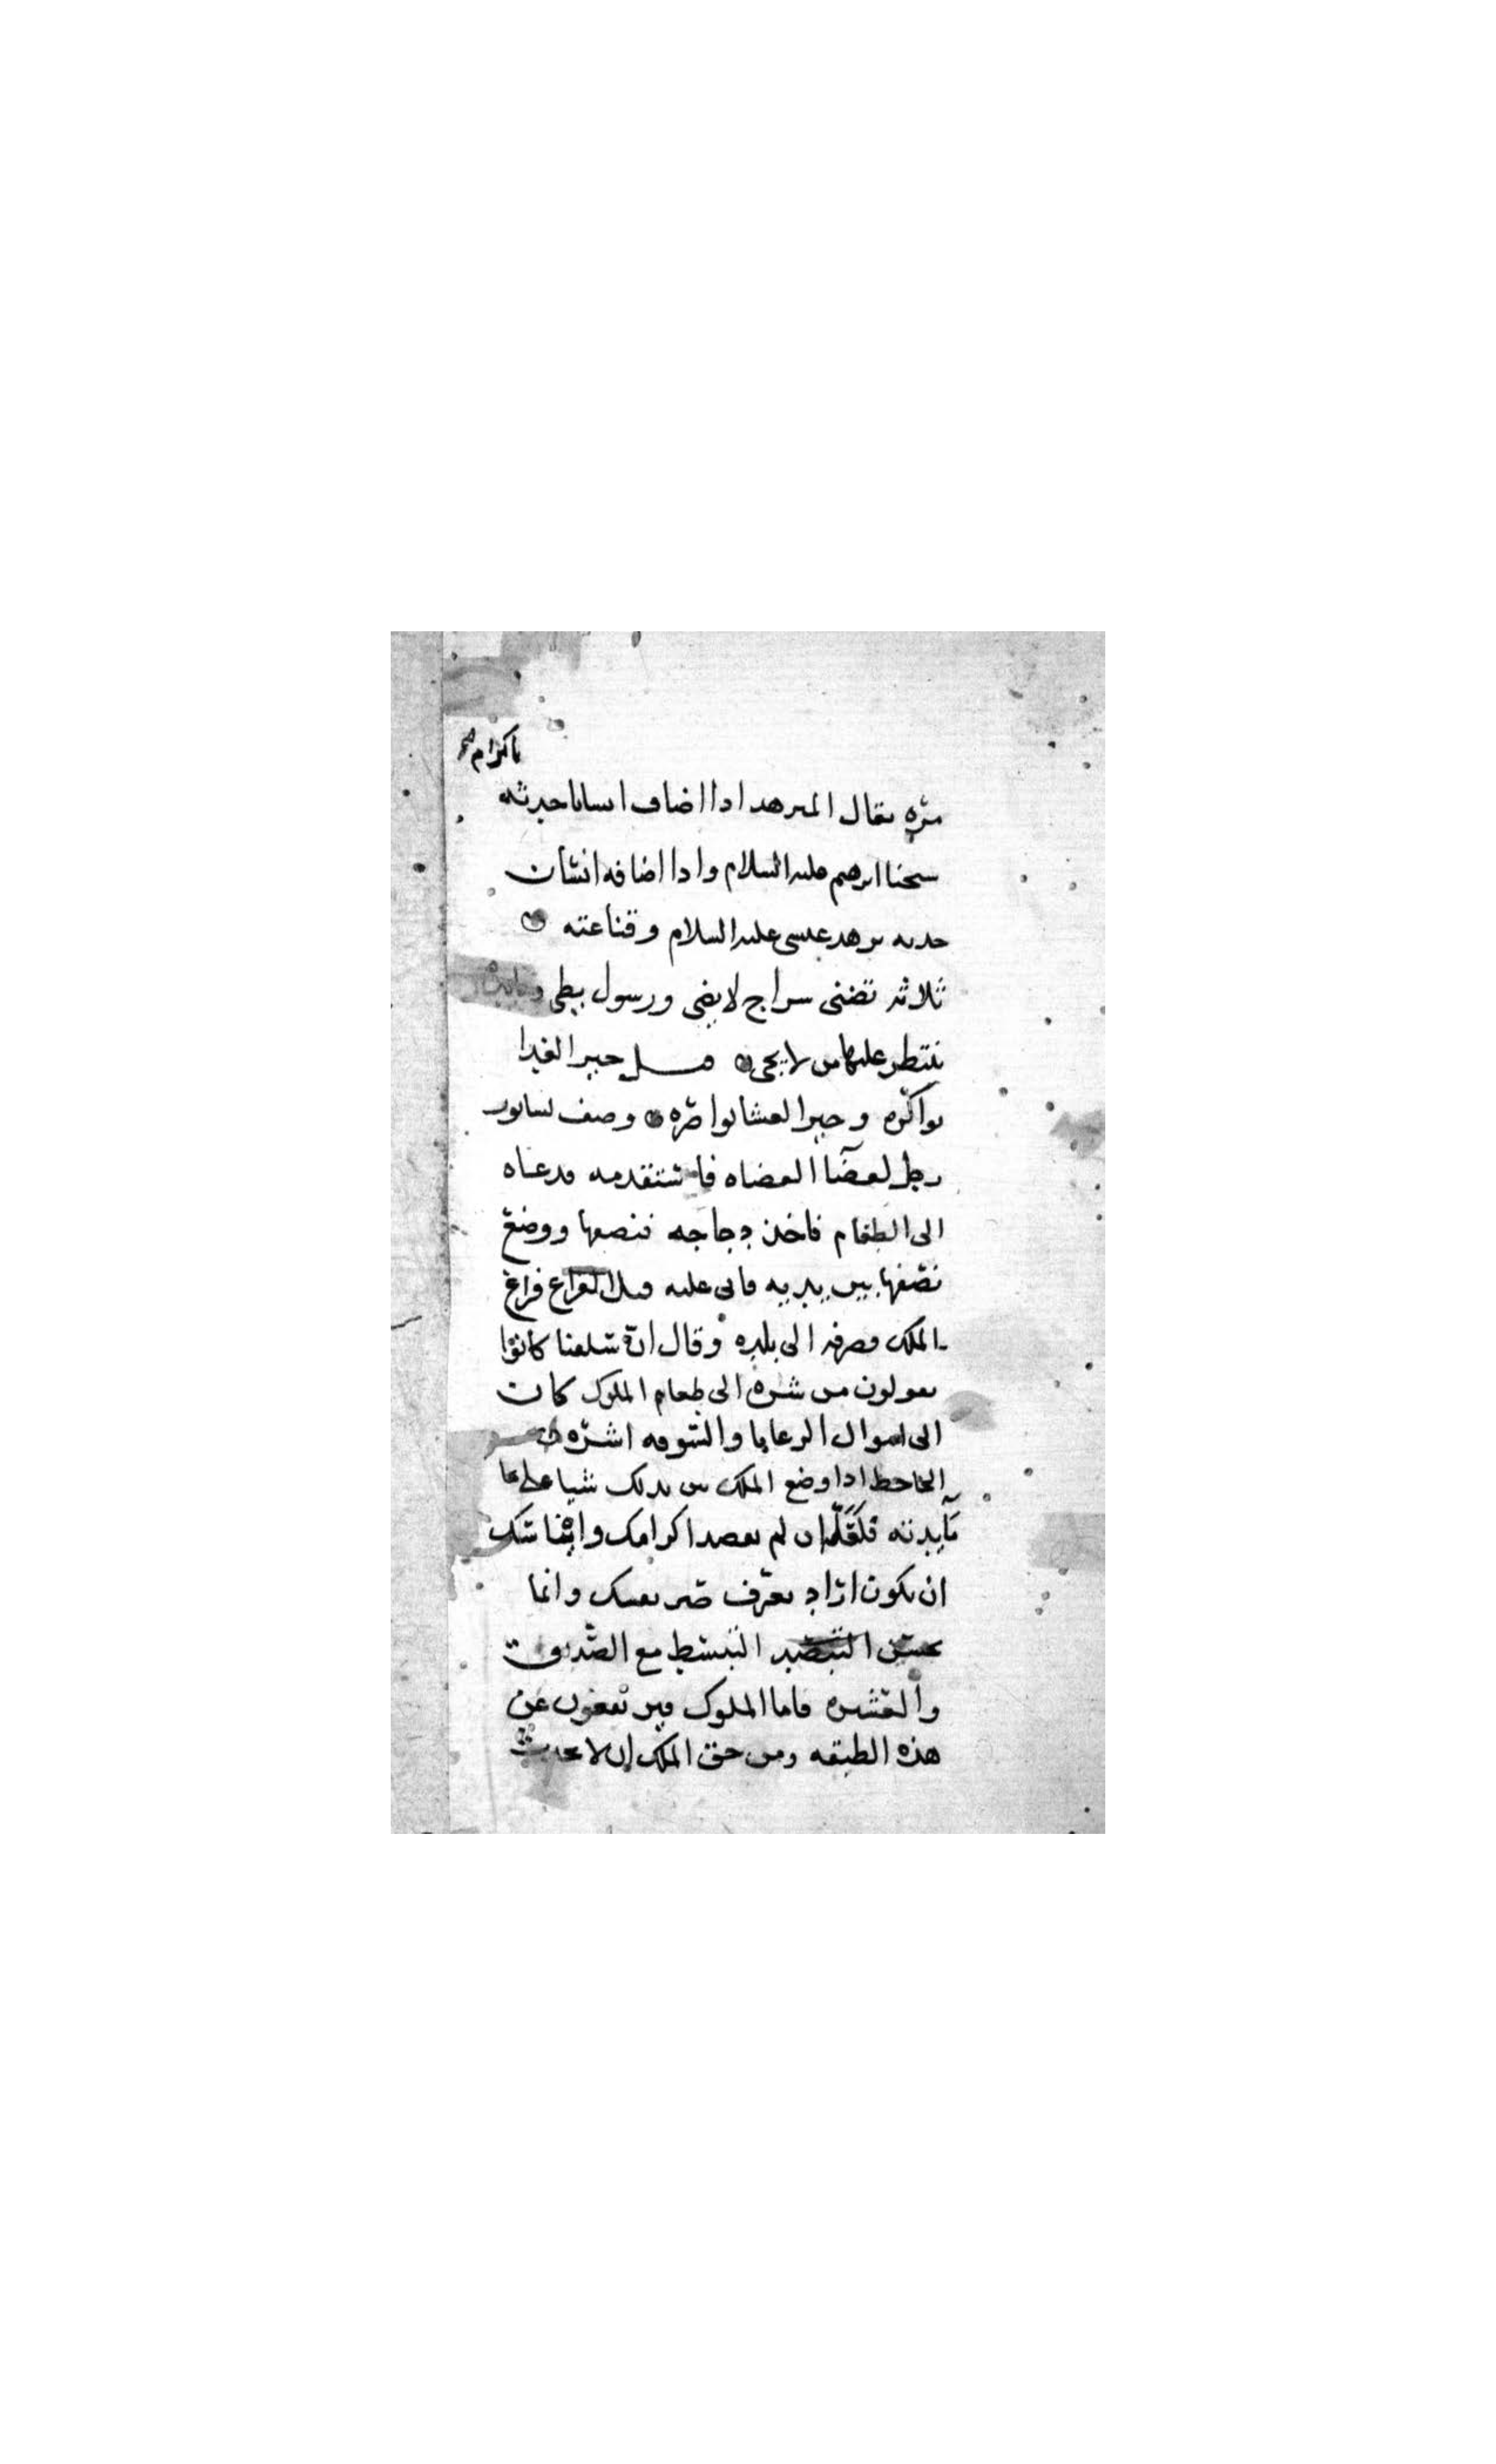 باكرام صح
مره يقال المرهد اذا اضاف انسانا حدثه
سخا ابرهيم عليه السلام واذا اضافه انسان
حدثه بزهد عيسى عليه السلام وقناعته
ثلاثه تضني سراج لا يضي ورسول بطي ومايده
ننتظر عليها من لا يجي قيل خير الغدا
بواكره وخير العشا بواصره وصف لسابور
رجل لقضا القضاه فاستقدمه فدعاه
الى الطعام فاخذ دجاجه فنصفها ووضع
نصفها بين يديه فاتى عليه قبل فراغ
الملك فصرفه الى بلده وقال ان سلفنا كانوا
يقولون من شره الى طعام الملوك كان
الى اموال الرعايا والسوقه اشره
الجاحظ اذا وضع الملك بين يديك شيا على
مايدته فلعله ان لم يقصد اكرامك وايناسك
ان يكون اراد يعرف ضبر نفسك وانما
يحسن التبسط مع الصديق
والعشير فاما الملوك فيرتفعون عن
هذه الطبقه ومن حق الملك ان لا يحدث